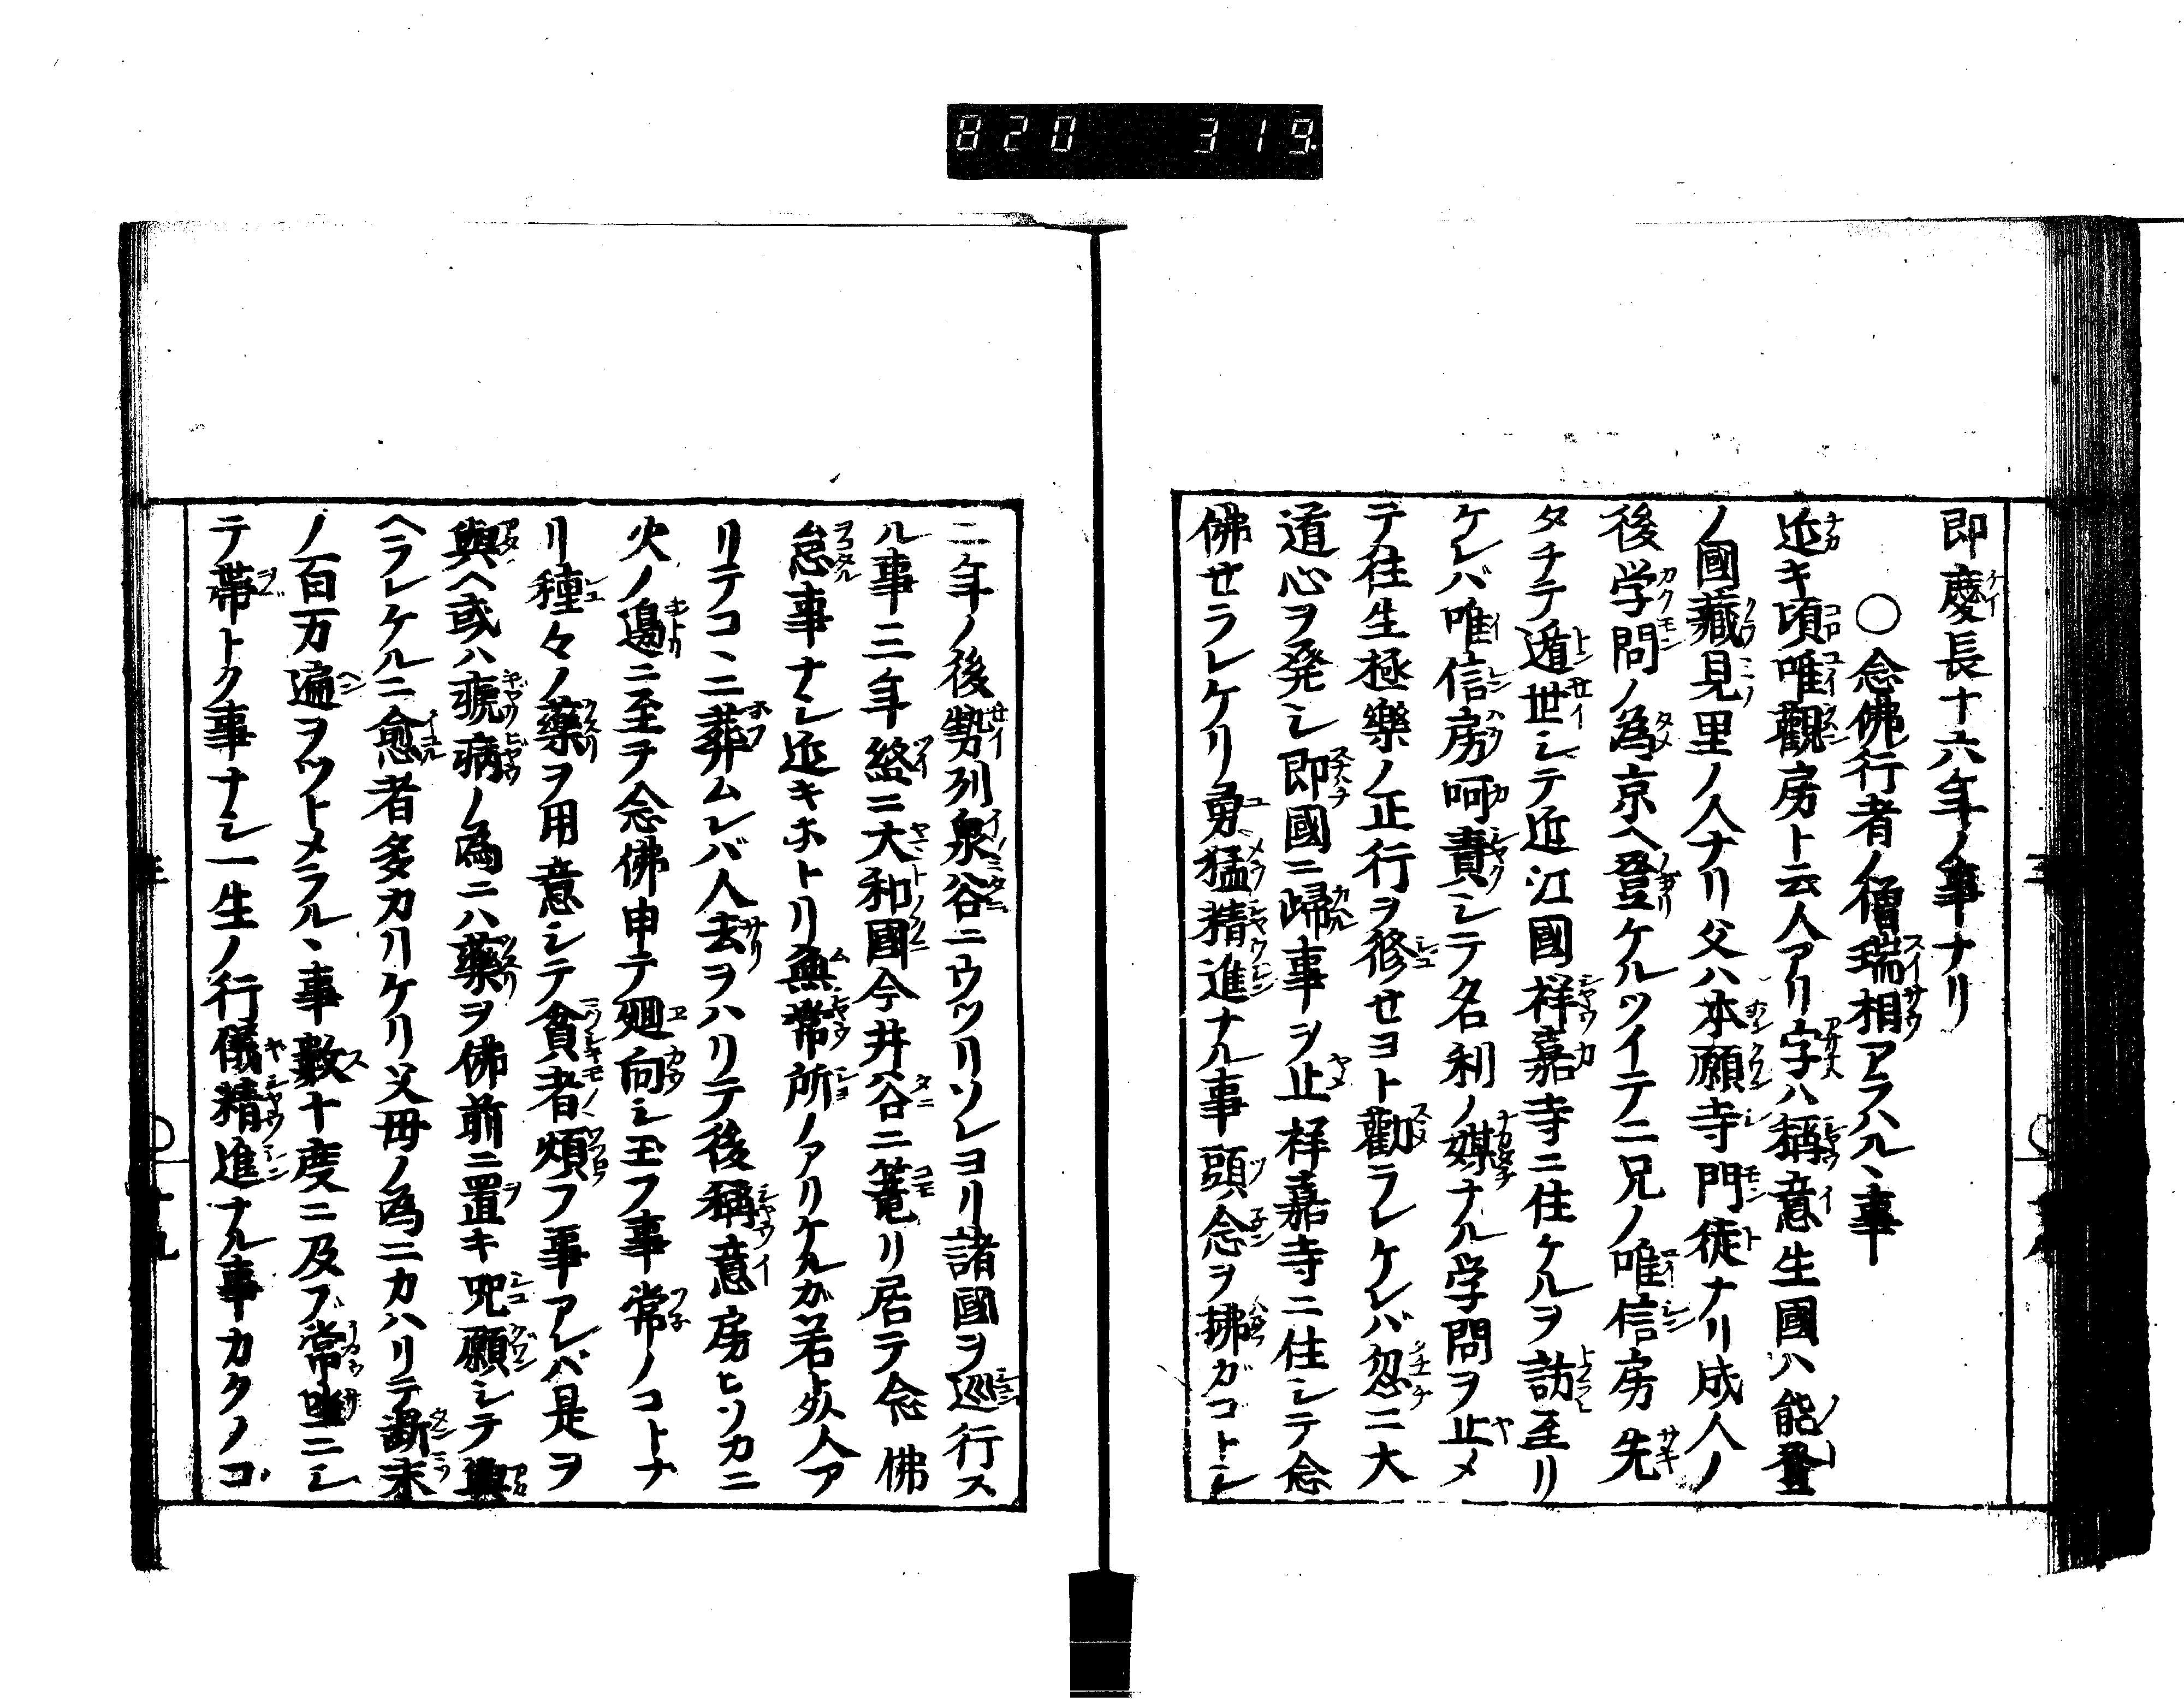 820 319
即慶長十六年ノ事ナリ
○念佛行者ノ僧瑞相アラハルヽ事
近キ頃唯觀房ト云人アリ字ハ稱意生國ハ能登
ノ國藏見里ノ人ナリ父ハ本願寺門徒ナリ成人ノ
後学問ノ為京ヘ登ケルツイテニ兄ノ唯信房先
タチテ遁世シテ近江國祥嘉寺ニ住ケルヲ訪至リ
ケレバ唯信房呵責シテ名利ノ媒ナル学問ヲ止メ
テ往生極樂ノ正行ヲ修セヨト勸ラレケレバ忽ニ大
道心ヲ発シ即國ニ歸事ヲ止祥嘉寺ニ住シテ念
佛セラレケリ勇猛精進ナル事頭念ヲ拂ガコトシ
二年ノ後勢列泉谷ニウツリソレヨリ諸國ヲ巡行ス
ル事三年終ニ大和國今井谷ニ篭リ居テ念佛
怠事ナシ近キホトリ無常所ノアリケルガ若死人ア
リテコヽニ葬ムレバ人去ヲハリテ後稱意房ヒソカニ
火ノ邊ニ至ヲ念佛申テ廻向シ玉フ事常ノコトナ
リ種々ノ藥ヲ用意シテ貧者煩フ事アレバ是ヲ
與ヘ或ハ瘧病ノ為ニハ藥ヲ佛前ニ置キ呪願シテ與
ヘラレケルニ愈者多カリケリ父母ノ為ニカハリテ断末
ノ百万遍ヲツトメラルヽ事數十度ニ及ブ常坐ニシ
テ帶トク事ナシ一生ノ行儀精進ナル事カクノゴ